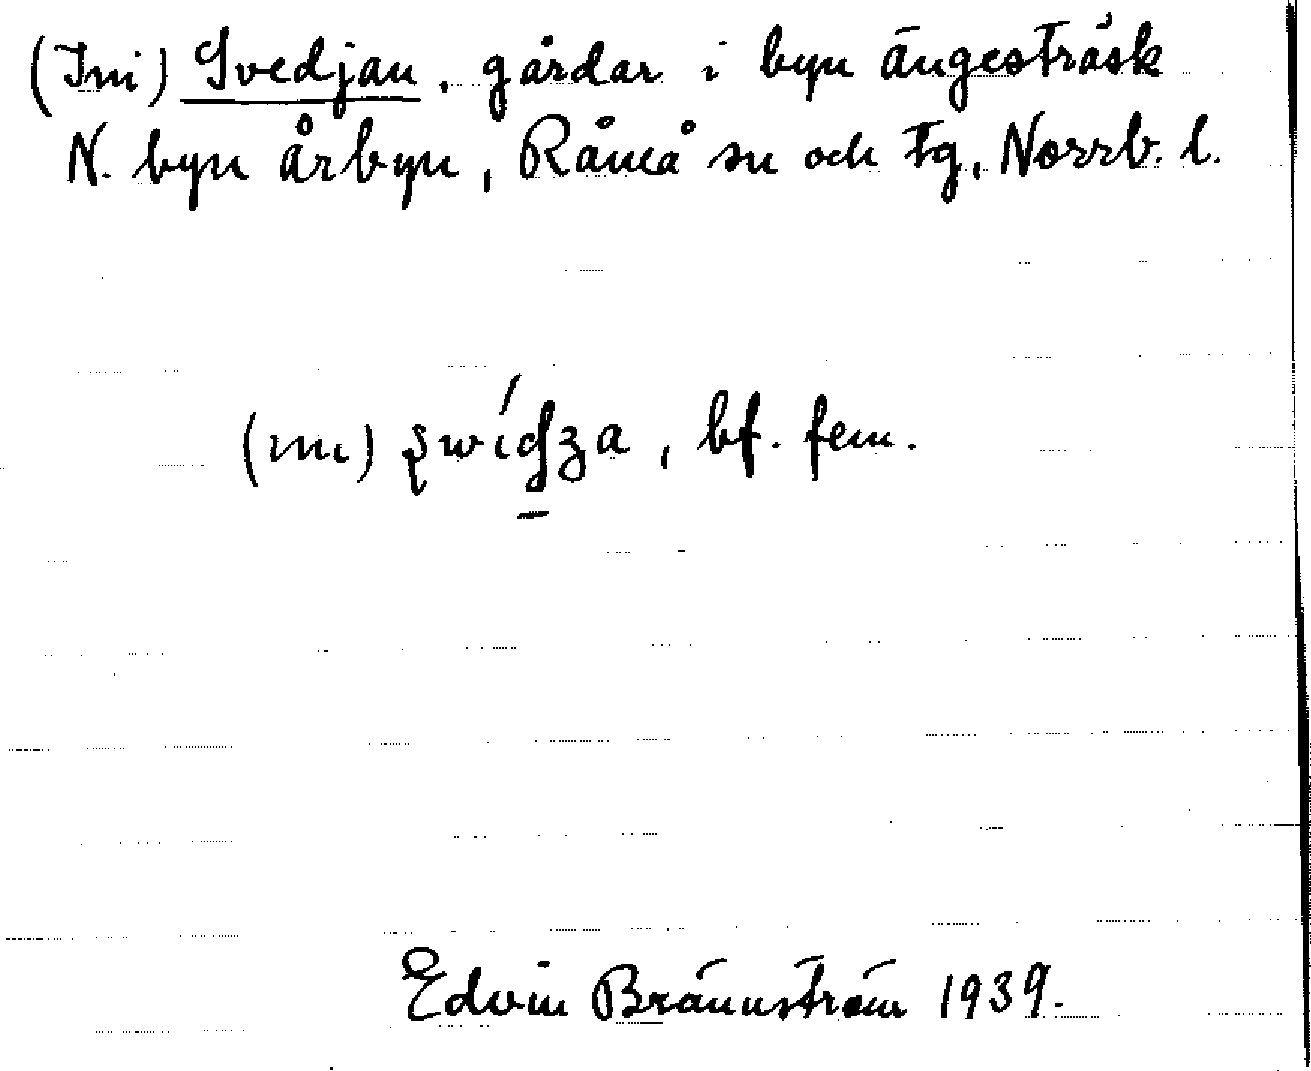 (Ini) Svedjan, gårdar i byn Ängesträsk
N. byn Årbyn, Råneå sn och tg, Norrb. l.
(ini) , bf. fem.
Edvin Brännström 1939.